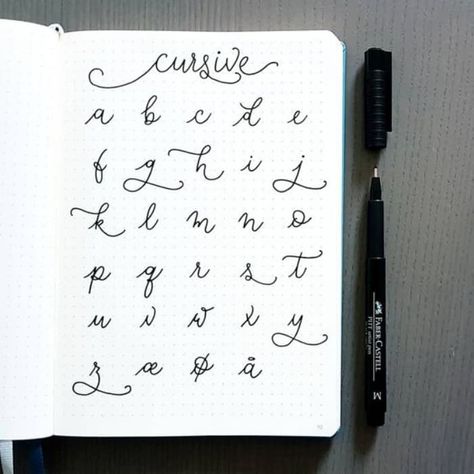 cursive
a b c d e
f g h i j
k l m n o
p q r s t
u v w x y
z æ ø å
FABER-CASTELL
PITT artist pen
M